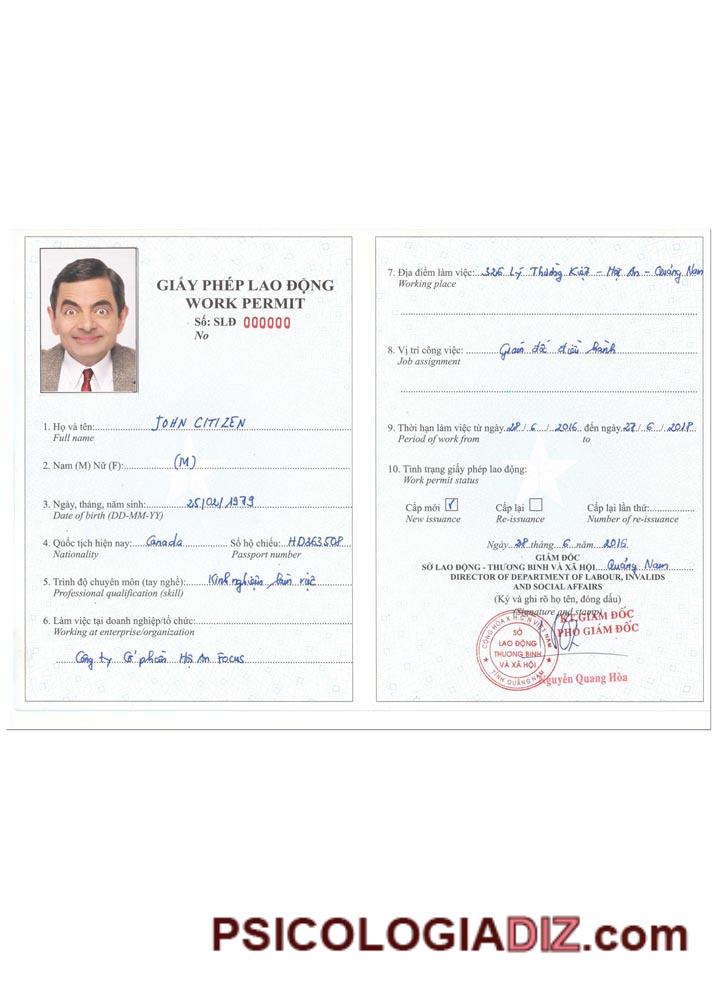 GIẤY PHÉP LAO ĐỘNG
WORK PERMIT
Số: SLĐ 000000
No
1. Họ và tên: JOHN CITIZEN
Full name
2. Nam (M) Nữ (F): (M)
3. Ngày, tháng, năm sinh: 25/02/1979
Date of birth (DD-MM-YY)
4. Quốc tịch hiện nay: Canada Số hộ chiếu: HD363508
Nationality Passport number
5. Trình độ chuyên môn (tay nghề): Kinh nghiệm làm việc
Professional qualification (skill)
6. Làm việc tại doanh nghiệp/tổ chức:
Working at enterprise/organization
Công ty Cổ phần Hội An FOCUS
7. Địa điểm làm việc: 326 Lý Thường Kiệt - Hội An - Quảng Nam
Working place
8. Vị trí công việc: Giám đốc điều hành
Job assignment
9. Thời hạn làm việc từ ngày 28/6/2016 đến ngày 27/6/2018
Period of work from to
10. Tình trạng giấy phép lao động:
Work permit status
Cấp mới Cấp lại Cấp lại lần thứ:
New issuance Re-issuance Number of re-issuance
Ngày 28 tháng 6 năm 2016
GIÁM ĐỐC
SỞ LAO ĐỘNG - THƯƠNG BINH VÀ XÃ HỘI Quảng Nam
DIRECTOR OF DEPARTMENT OF LABOUR, INVALIDS
AND SOCIAL AFFAIRS
(Ký và ghi rõ họ tên, đóng dấu)
(Signature and stamp)
KT.GIÁM ĐỐC
PHÓ GIÁM ĐỐC
CỘNG HÒA X.H.C.N VIỆT NAM
SỞ
LAO ĐỘNG
THƯƠNG BINH
VÀ XÃ HỘI
TỈNH QUẢNG NAM
Nguyễn Quang Hòa
PSICOLOGIADIZ.com